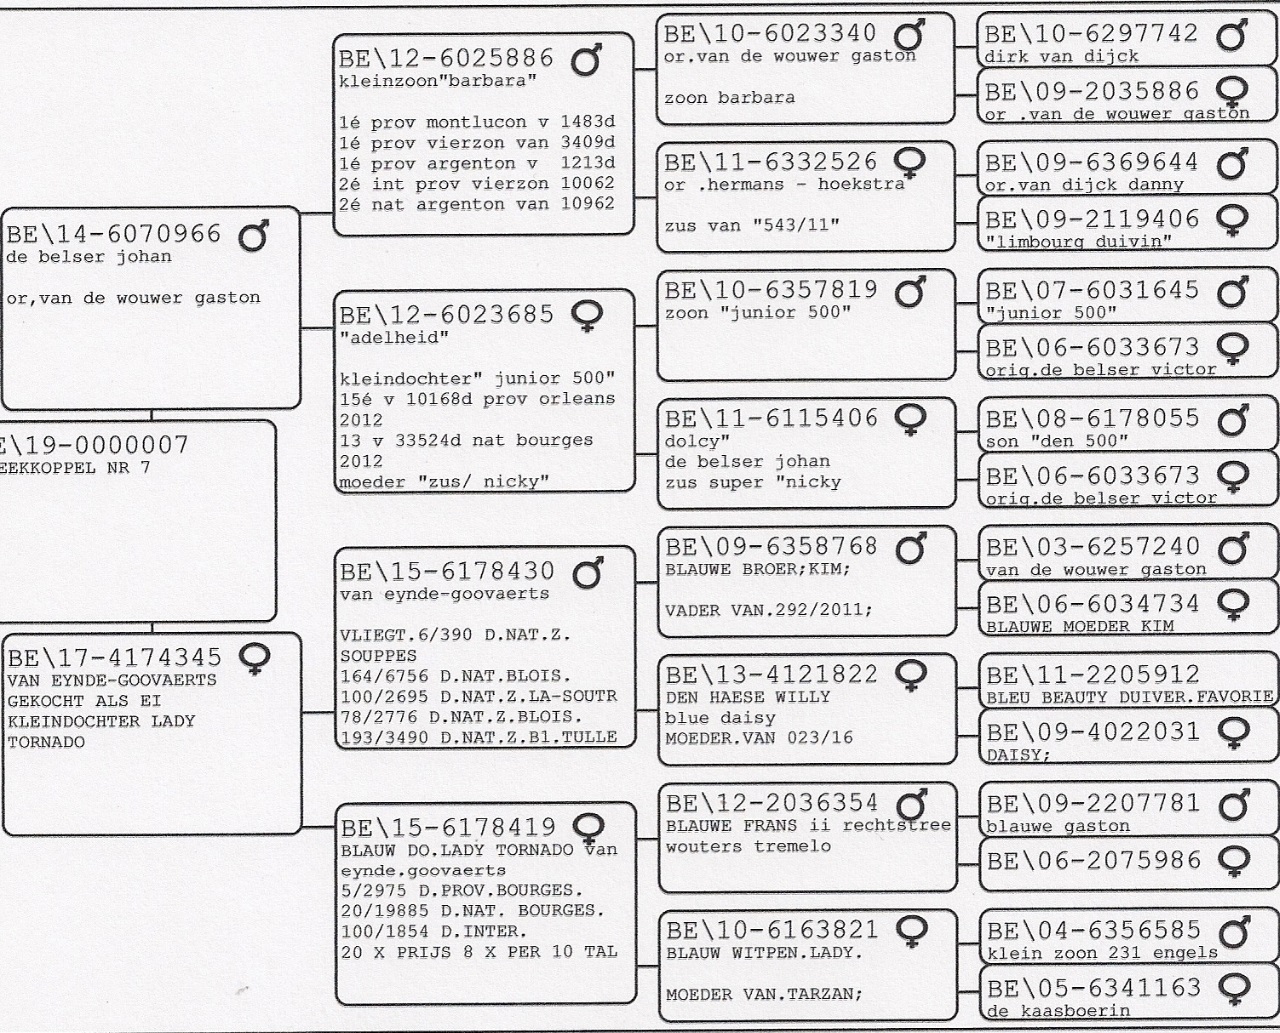 BE\14-6070966 ♂
de belser johan
or,van de wouwer gaston
E\19-0000007
EEKKOPPEL NR 7
BE\17-4174345 ♀
VAN EYNDE-GOOVAERTS
GEKOCHT ALS EI
KLEINDOCHTER LADY
TORNADO
BE\12-6025886 ♂
kleinzoon"barbara"
1é prov montlucon v 1483d
1é prov vierzon van 3409d
1é prov argenton v 1213d
2é int prov vierzon 10062
2é nat argenton van 10962
BE\12-6023685 ♀
"adelheid"
kleindochter" junior 500"
15é v 10168d prov orleans
2012
13 v 33524d nat bourges
2012
moeder "zus/ nicky"
BE\15-6178430 ♂
van eynde-goovaerts
VLIEGT.6/390 D.NAT.Z.
SOUPPES
164/6756 D.NAT.BLOIS.
100/2695 D.NAT.Z.LA-SOUTR
78/2776 D.NAT.Z.BLOIS.
193/3490 D.NAT.Z.B1.TULLE
BE\15-6178419 ♀
BLAUW DO.LADY TORNADO van
eynde.goovaerts
5/2975 D.PROV.BOURGES.
20/19885 D.NAT. BOURGES.
100/1854 D.INTER.
20 X PRIJS 8 X PER 10 TAL
BE\10-6023340 ♂
or.van de wouwer gaston
zoon barbara
BE\11-6332526 ♀
or .hermans - hoekstra
zus van "543/11"
BE\10-6357819 ♂
zoon "junior 500"
BE\11-6115406 ♀
dolcy"
de belser johan
zus super "nicky
BE\09-6358768 ♂
BLAUWE BROER;KIM;
VADER VAN.292/2011;
BE\13-4121822 ♀
DEN HAESE WILLY
blue daisy
MOEDER.VAN 023/16
BE\12-2036354 ♂
BLAUWE FRANS ii rechtstree
wouters tremelo
BE\10-6163821 ♀
BLAUW WITPEN.LADY.
MOEDER VAN.TARZAN;
BE\10-6297742 ♂
dirk van dijck
BE\09-2035886 ♀
or .van de wouwer gaston
BE\09-6369644 ♂
or.van dijck danny
BE\09-2119406 ♀
"limbourg duivin"
BE\07-6031645 ♂
"junior 500"
BE\06-6033673 ♀
orig.de belser victor
BE\08-6178055 ♂
son "den 500"
BE\06-6033673 ♀
orig.de belser victor
BE\03-6257240 ♂
van de wouwer gaston
BE\06-6034734 ♀
BLAUWE MOEDER KIM
BE\11-2205912
BLEU BEAUTY DUIVER.FAVORIE
BE\09-4022031 ♀
DAISY;
BE\09-2207781 ♂
blauwe gaston
BE\06-2075986 ♀
BE\04-6356585 ♂
klein zoon 231 engels
BE\05-6341163 ♀
de kaasboerin